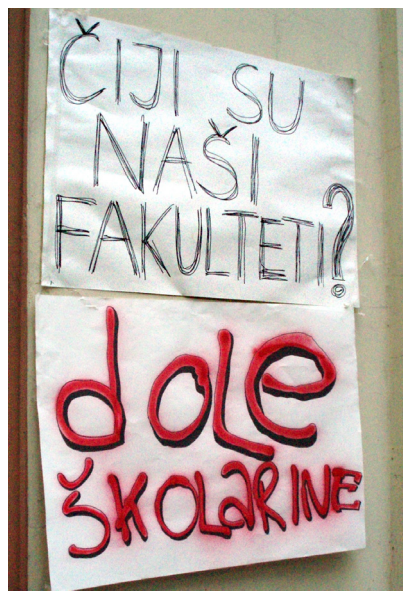 ČIJI SU
NAŠI
FAKULTETI?
dole
ŠKOLaRINE